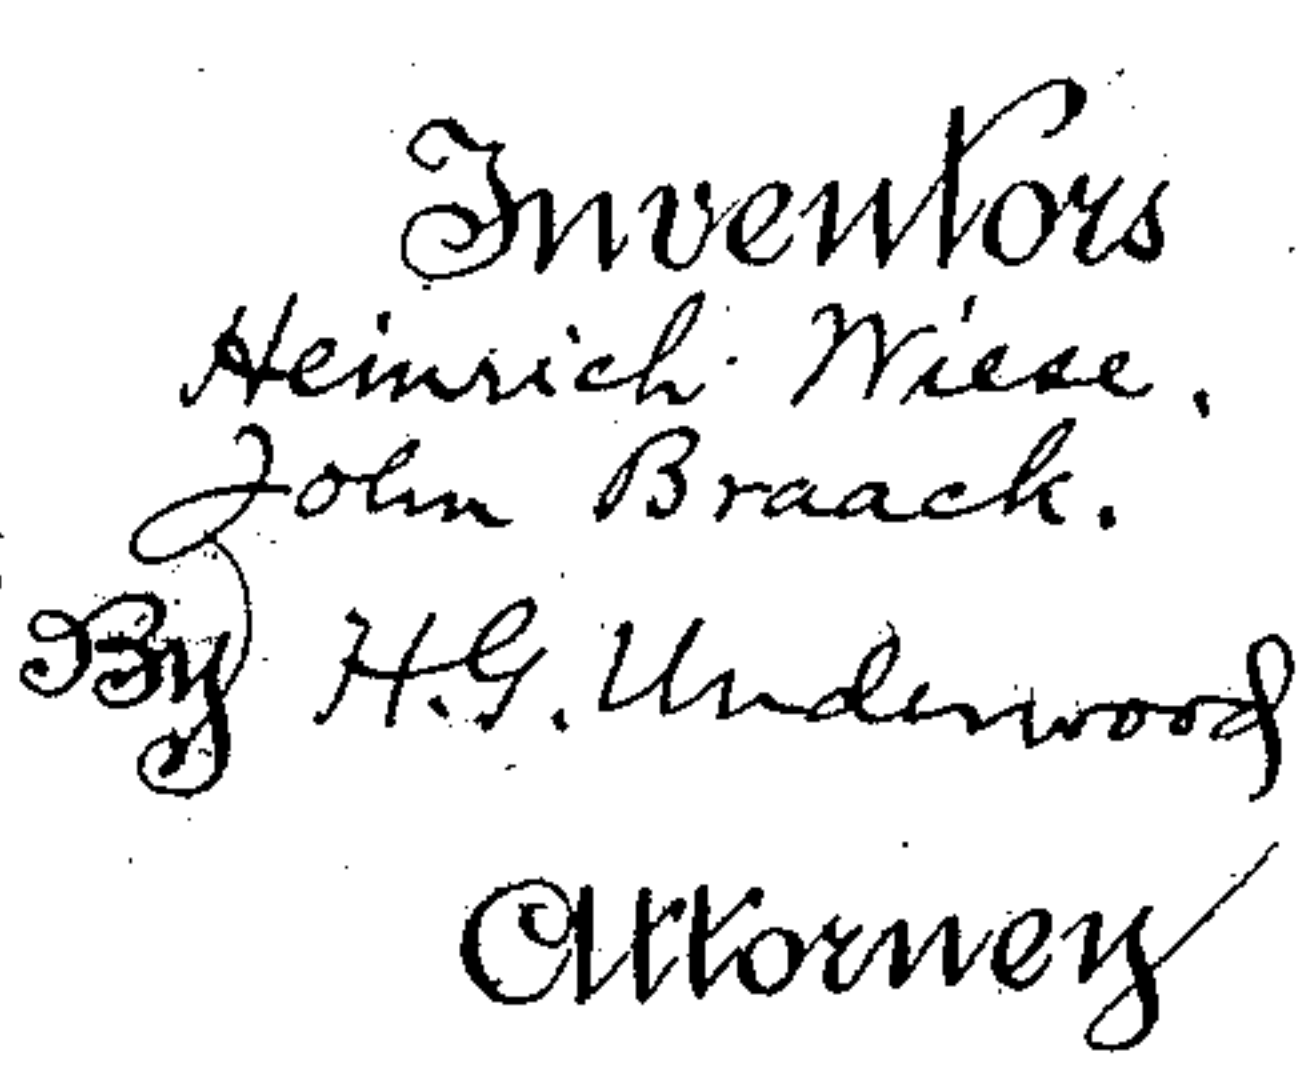 Inventors
Heinrich Wiese.
John Braack.
By H. G. Underwood
Attorney